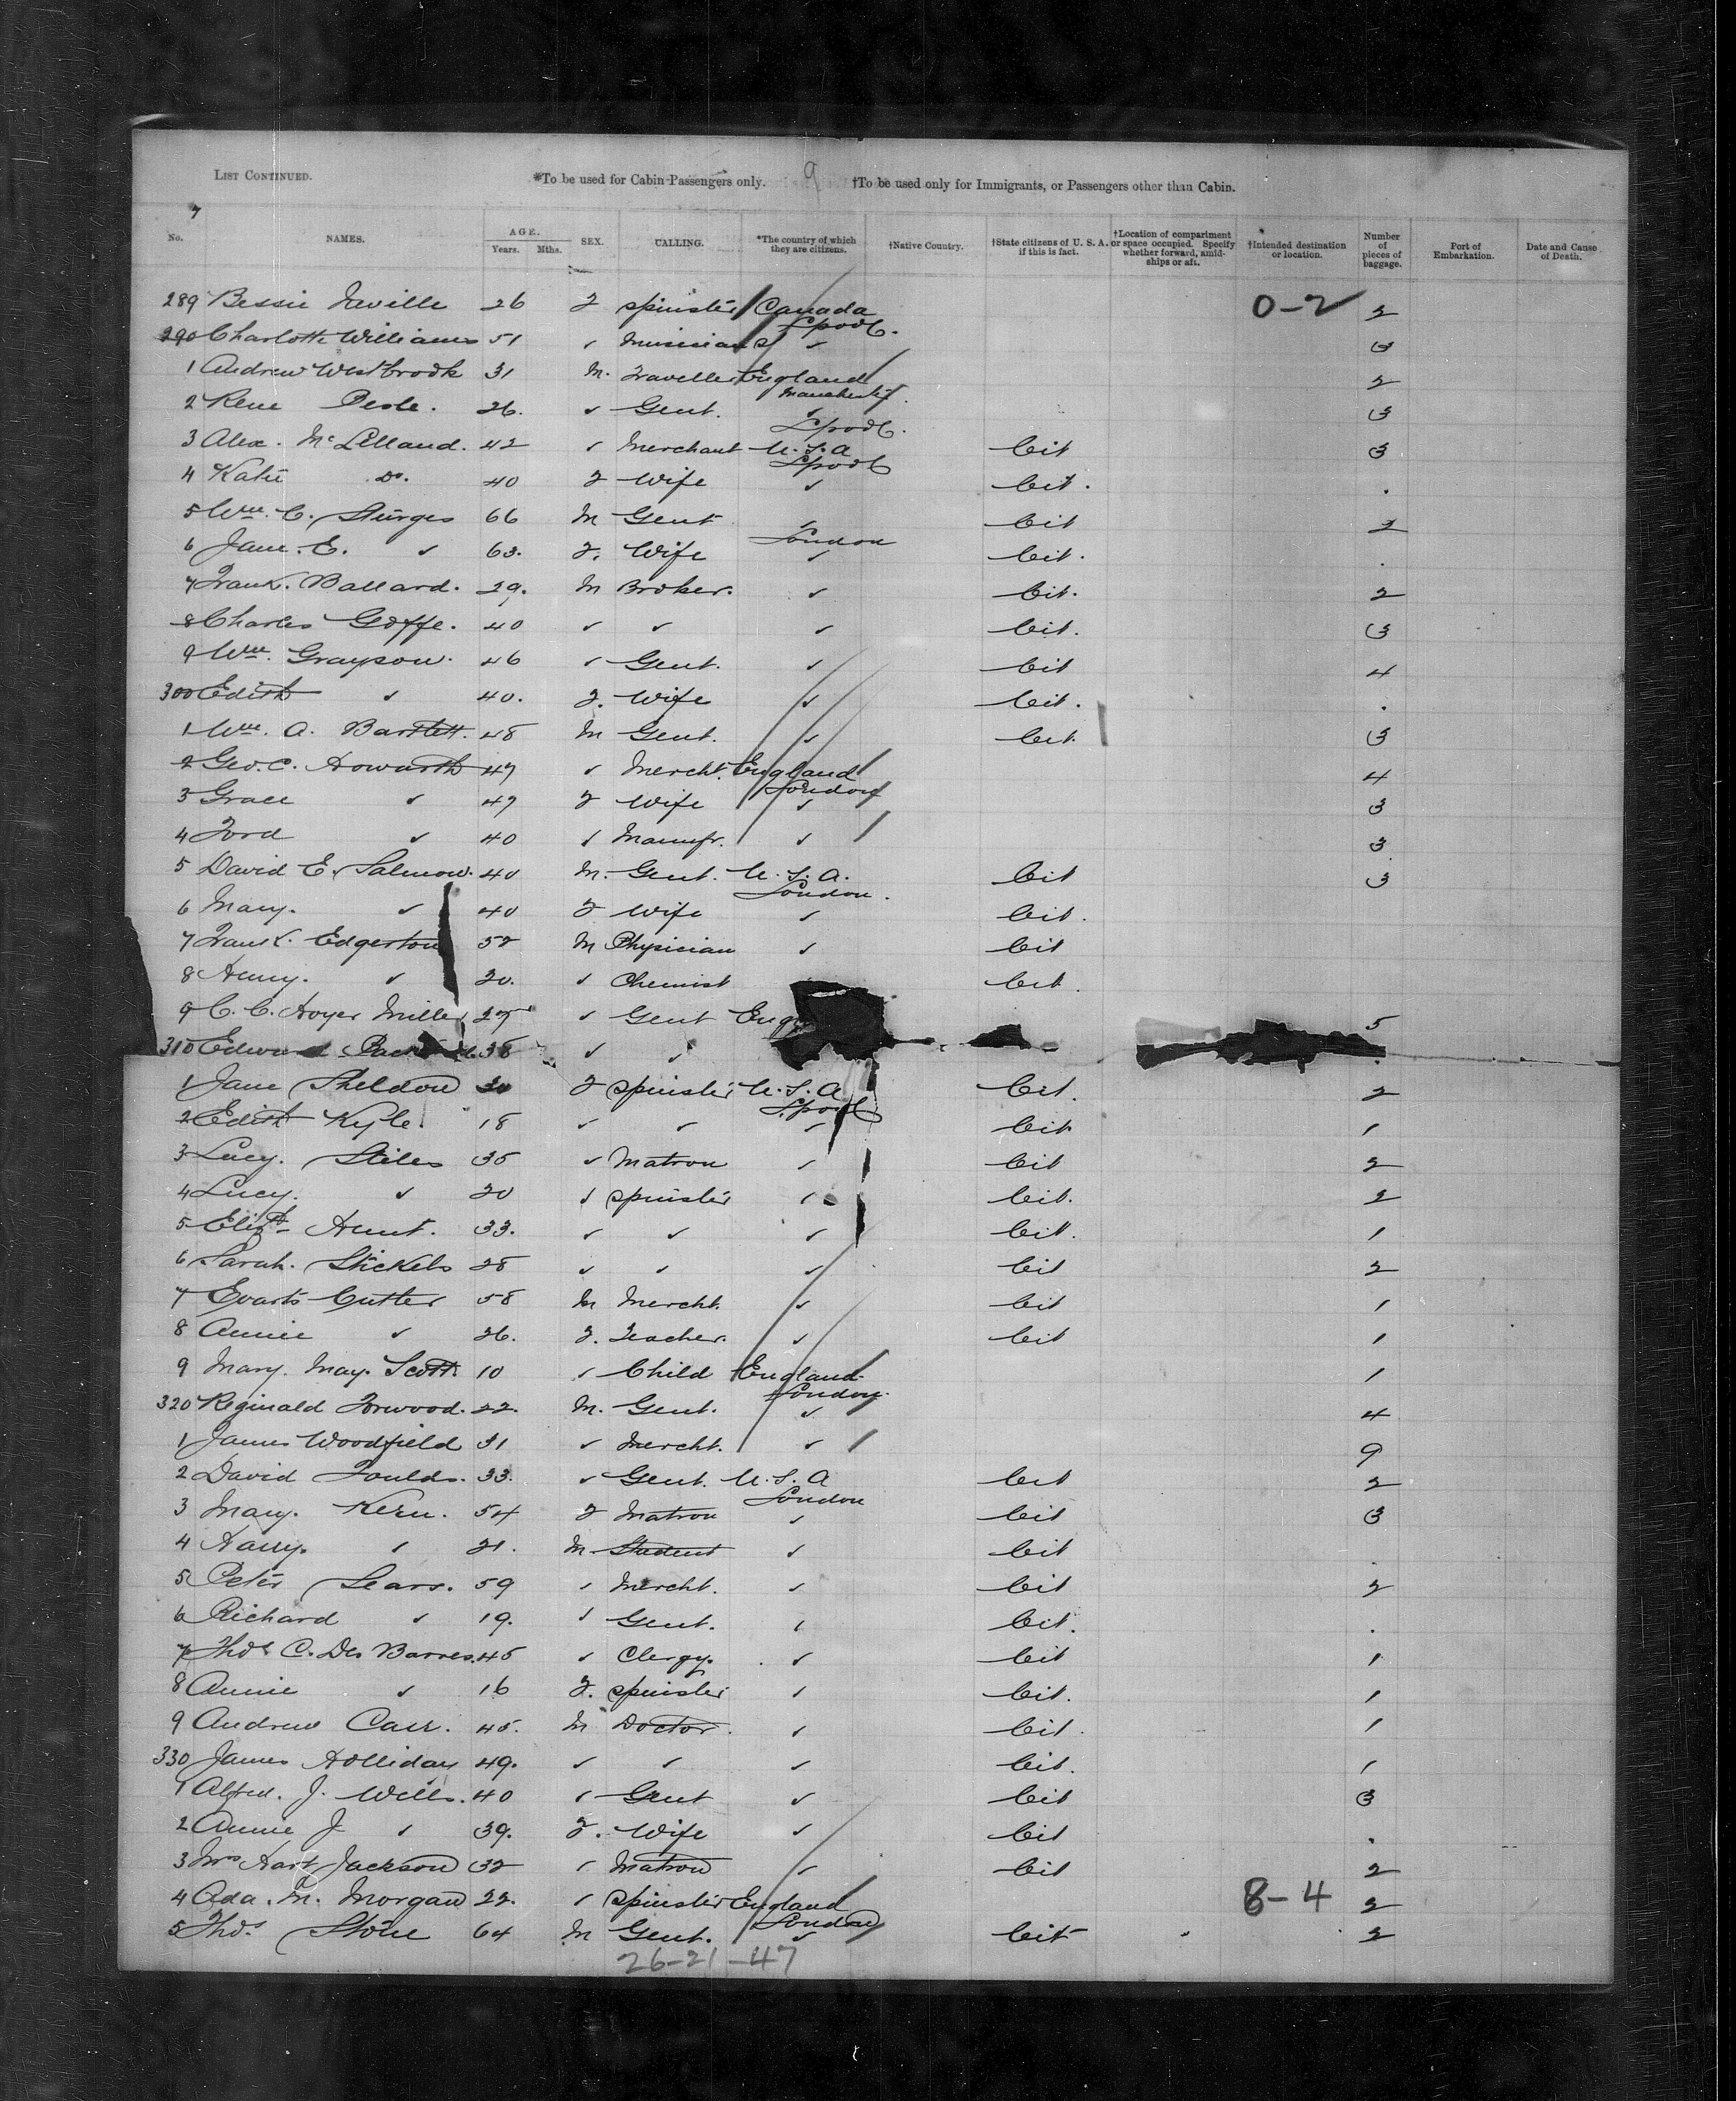 LIST CONTINUED. *To be used for Cabin Passengers only. 9 †To be used only for Immigrants, or Passengers other than Cabin.
7
No. NAMES. AGE. Years. Mths. SEX. CALLING. *The country of which they are citizens. †Native Country. †State citizens of U. S. A. if this is fact. †Location of compartment or space occupied. Specify whether forward, amidships or aft. †Intended destination or location. Number of pieces of baggage. Port of Embarkation. Date and Cause of Death.
289 Bessie Naville 26 F spinster Canada 0-2 2
Lpool.
290 Charlotte Williams 51 ✓ Musician ✓ 3
1 Andrew Westbrook 31 M. Traveller England 2
Manchester.
2 Rene 26. ✓ Gent. ✓ 3
Lpool.
3 Alex. McLelland. 42 ✓ Merchant U.S.A Cit 3
Lpool
4 Katie Do. 40 F Wife ✓ Cit. .
5 Wm. C. Sturges 66 M Gent ✓ Cit 2
London
6 Jane. E. ✓ 63. F. Wife ✓ Cit. .
7 Frank. Ballard. 29. M Broker. ✓ Cit. 2
8 Charles Goffe. 40 ✓ ✓ ✓ Cit. 3
9 Wm. Grayson. 46 ✓ Gent. ✓ Cit 4
300 Edith ✓ 40. F. Wife ✓ Cit. .
1 Wm. A. Bartlett. 48 M Gent. ✓ Cit. 3
2 Geo. C. Howarth 47 ✓ Mercht. England 4
London
3 Grace ✓ 47 F Wife ✓ 3
4 Ford ✓ 40 ✓ Manufr. ✓ 3
5 David E. Salmon. 40 M. Gent. U.S.A. Cit 3
London.
6 Mary. ✓ 40 F Wife ✓ Cit.
7 Frank. Edgerton 52 M Physician ✓ Cit
8 Henry. ✓ 20. ✓ Chemist Cit.
9 C. C. Hoyer Miller 27 ✓ Gent Eng 5
310 38 ✓ ✓ .
1 Jane Sheldon 30 F spinster U.S.A Cit. 2
Lpool
2 Edith Kyle. 18 ✓ ✓ ✓ Cit 1
3 Lucy. Stiles 35 ✓ Matron ✓ Cit 2
4 Lucy. ✓ 20 ✓ spinster ✓ Cit. 2
5 Elizth Hunt. 33. ✓ ✓ ✓ Cit. 1
6 Sarah. Stickels 28 ✓ ✓ ✓ Cit 2
7 Evarts Cutter 58 M Mercht. ✓ Cit 1
8 Annie ✓ 26. F. Teacher. ✓ Cit 1
9 Mary. May. Scott 10 ✓ Child England 1
London.
320 Reginald Horwood. 22. M. Gent. ✓ 4
1 James Woodfield 31 ✓ Mercht. ✓ 9
2 David Foulds. 33. ✓ Gent. U.S.A Cit 2
London
3 Mary. Kern. 54 F Matron ✓ Cit 3
4 Harry. ✓ 21. M. Student ✓ Cit .
5 Peter Sears. 59 ✓ Mercht. ✓ Cit 2
6 Richard ✓ 19. ✓ Gent. ✓ Cit. .
7 Thos C. Des Barres. 45 ✓ Clergy. ✓ Cit 1
8 Annie ✓ 16 F. spinster ✓ Cit. 1
9 Andrew Carr. 45. M Doctor. ✓ Cit. 1
330 James Holliday 49. ✓ ✓ ✓ Cit. 1
1 Alfred. J. Wells. 40 ✓ Gent ✓ Cit 3
2 Annie J ✓ 39. F. Wife ✓ Cit .
3 Mrs Hart Jackson 32 ✓ Matron ✓ Cit 2
4 Ada. M. Morgan 22. ✓ spinster England 8-4 2
London
5 Thos. Stone 64 M Gent. ✓ Cit 2
26-21-47